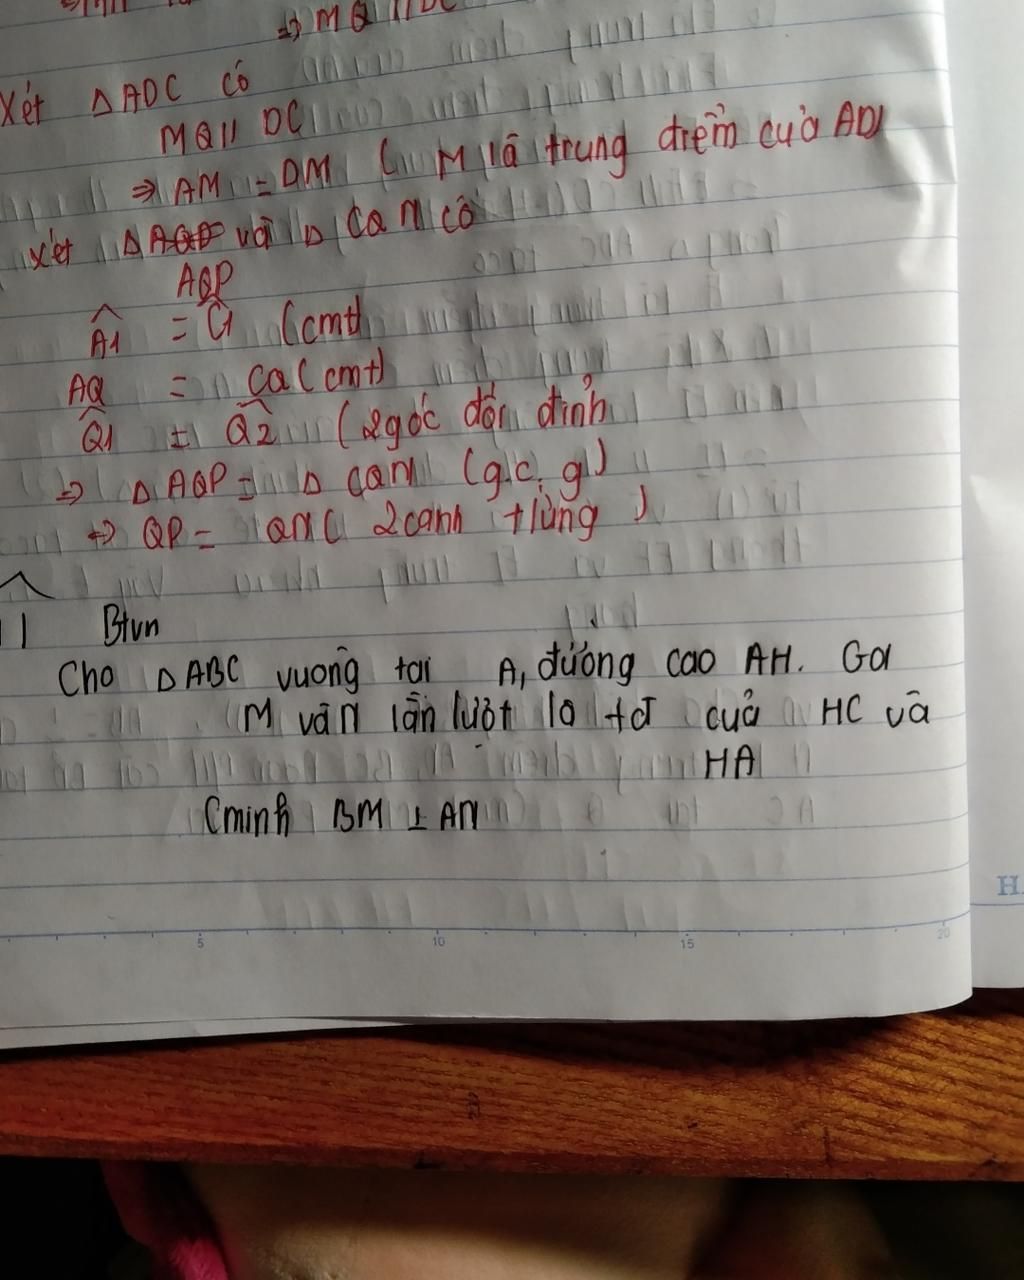 ⇒ MQ // DC
Xét ΔADC có
MQ // DC
⇒ AM = DM ( M là trung điểm của AD)
xét ΔAQP và Δ CQN có
AQP
Â1 = Ĉ1 (cmt)
AQ = CQ (cmt)
Q̂1 = Q̂2 (2 góc đối đỉnh
⇒ Δ AQP = Δ CQN (g.c.g)
⇒ QP = QN ( 2 cạnh tứng )
Btvn
Cho ΔABC vuông tại A, đường cao AH. Gọi
M và N lần lượt là tđ của HC và
HA
Cminh BM ⊥ AN
5 10 15 20
H.